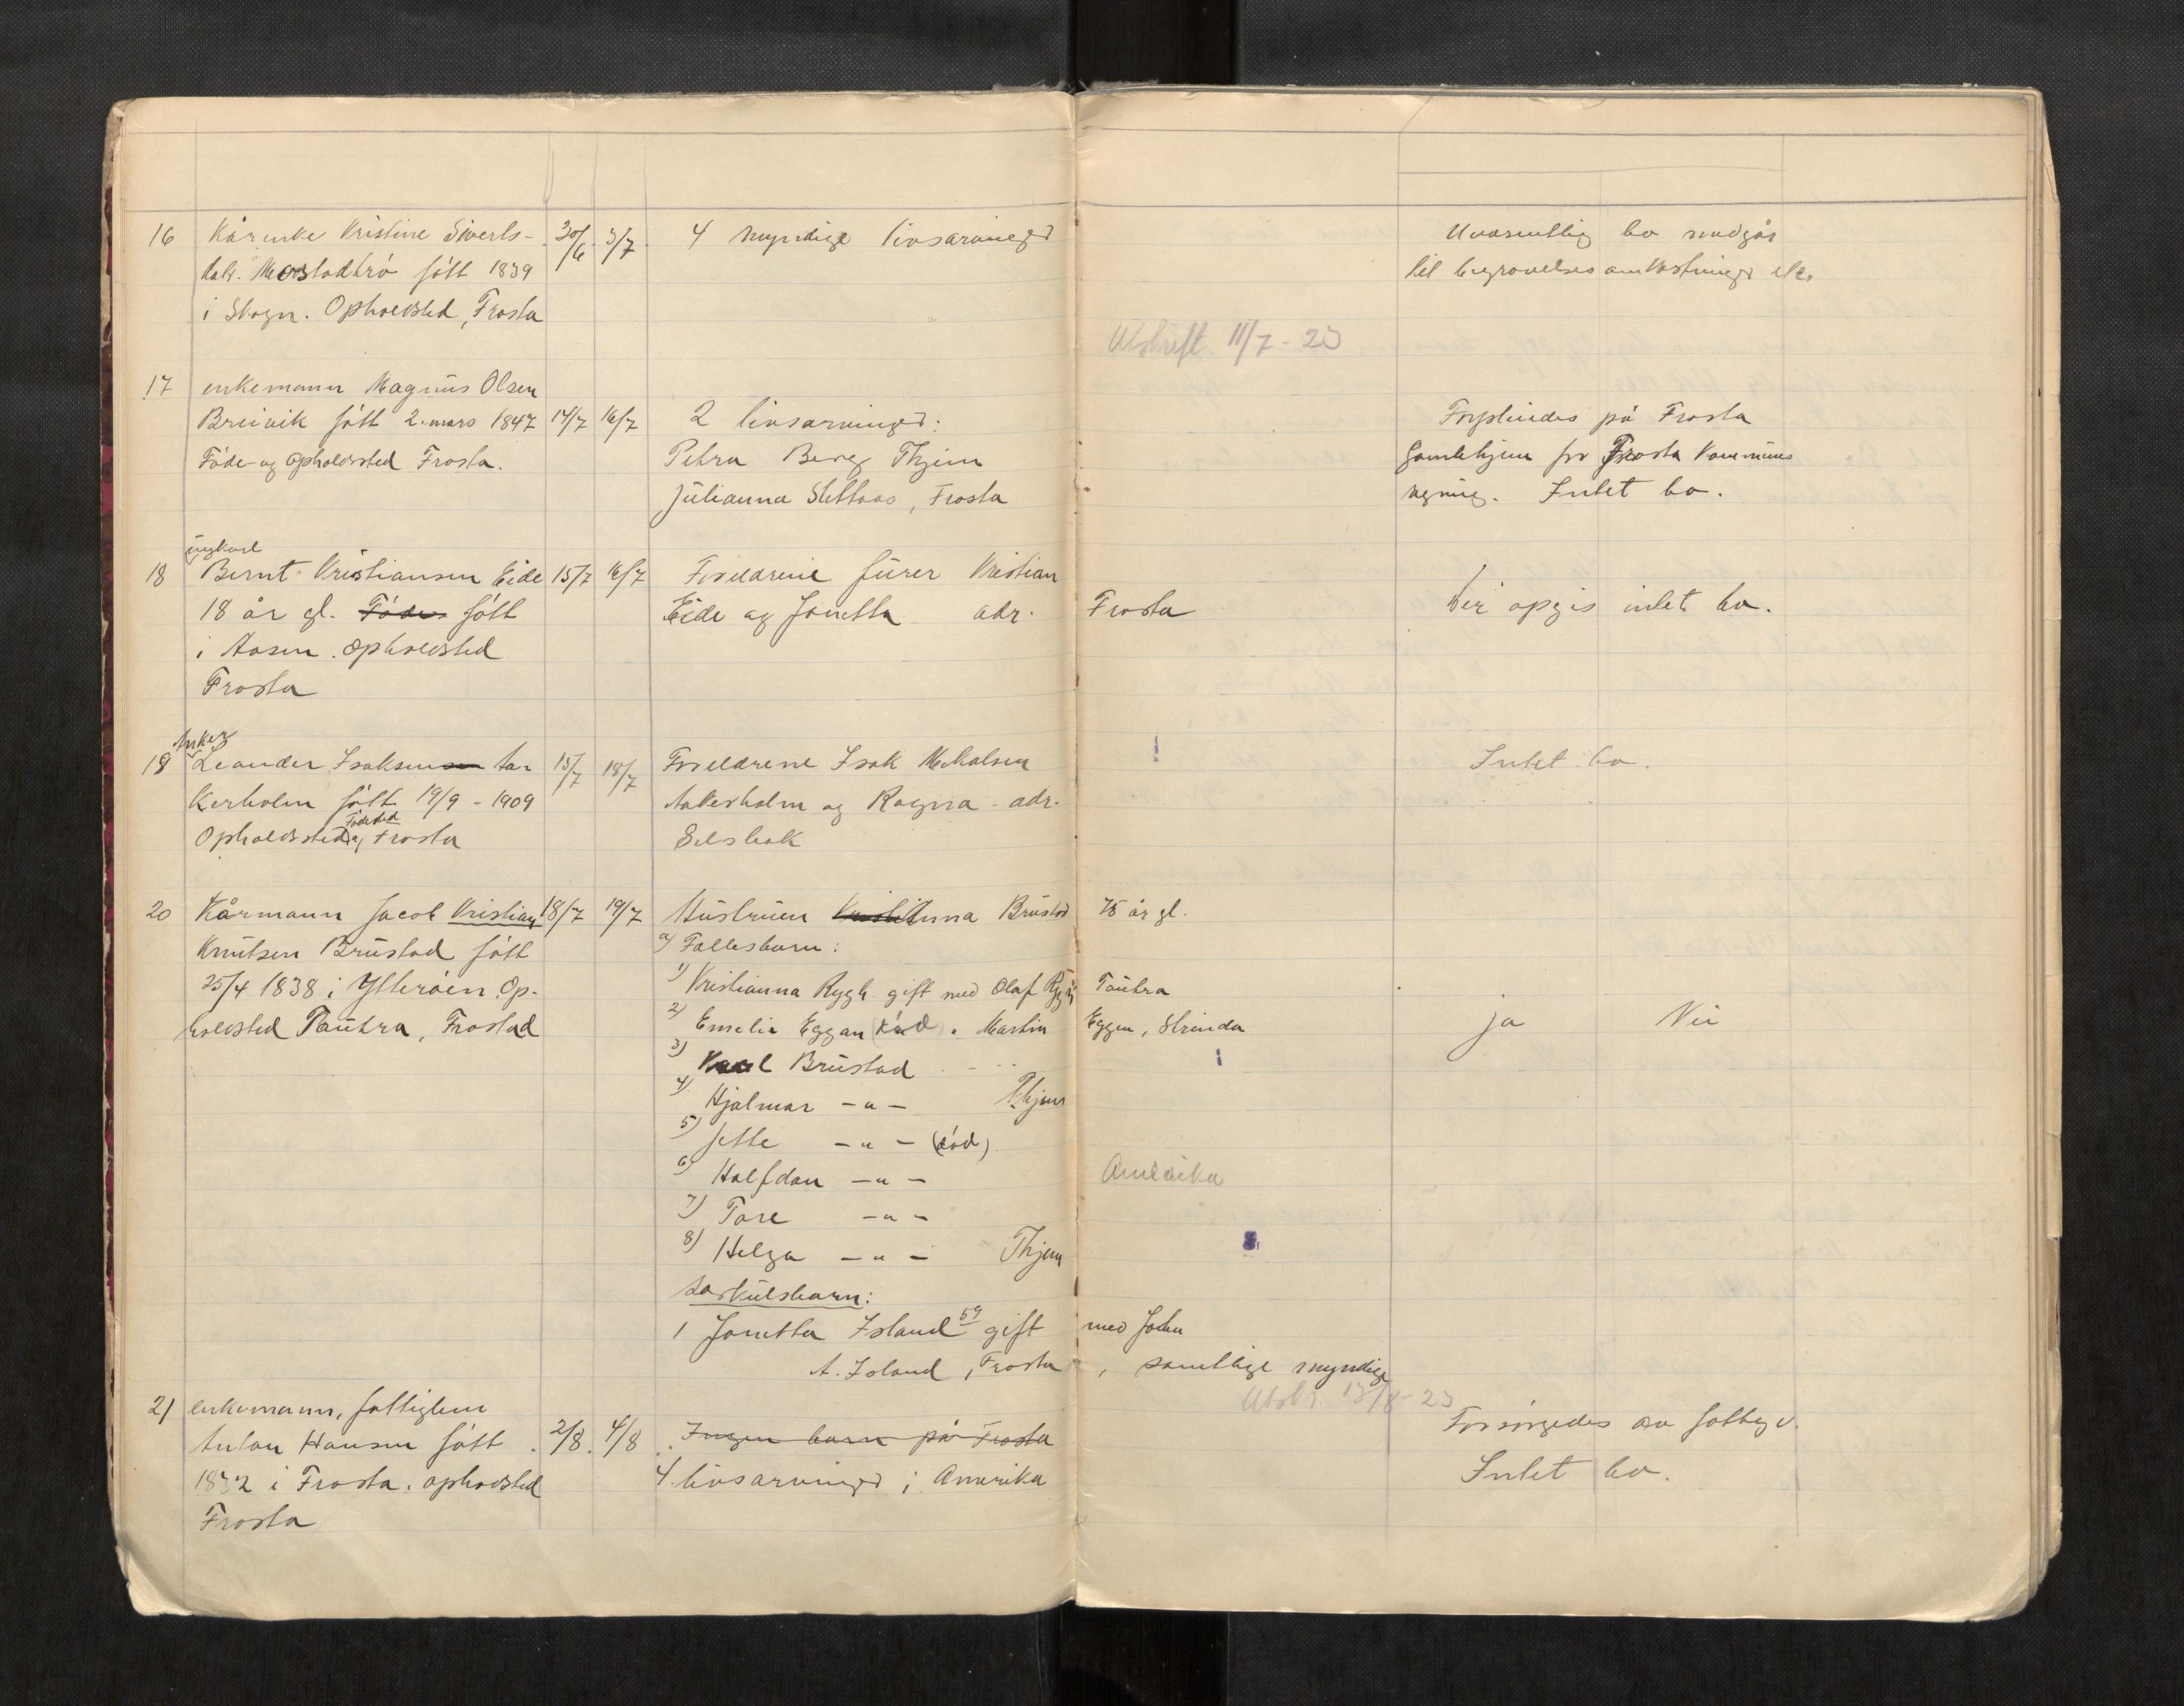 16 Kårenke Kristine Siverts- 30/6 3/7 4 myndige livsarvinger Uvæsentlig bo medgår
datr. født 1839 til begravelsesomkostninger etc.
i Skogn. Opholdsted, Frosta
Utskrift 11/7 - 23
17 enkemann Magnus Olsen
Breivik født 2. mars 1847 14/7 16/7 2 livsarvinger: Forpleiedes på Frosta
Føde- og opholdssted Frosta. Petra Berg Thjem Gamlehjem for Frosta kommunes
Julianna Slettaas, Frosta regning. Intet bo.
ungkarl
18 Bernt Kristiansen Eide 15/7 16/7 Foreldrene fisker Kristian Der opgis intet bo.
18 år gl. Føde født Eide og Jonetta adr. Frosta
i Aasen. opholdsted
Frosta
19 Leander Isaksen Aa- 15/7 18/7 Foreldrene Isak Mikalsen Intet bo.
kerholm født 19/9 - 1909 Aakerholm og Ragna - adr.
Opholdssted og Fødested Frosta Selsbak
20 Kårmann Jacob Kristian 18/7 19/7 Hustruen Anna Brustad 75 år gl.
Knutsen Brustad født a) Fellesbarn:
25/4 1838 i Ytterøen. Op- 1) Kristianna Rygh gift med Olaf Rygh Tautra
holdsted Tautra, Frosta 2) Emelie Eggan (død) " Martin Eggen, Strinda ja Nei
3) Karl Brustad
4) Hjalmar - " - Thjem
5) Jette - " - (død)
6) Halfdan - " - Amerika
7) Tore - " -
8) Helga - " - Thjem
Særkulsbarn:
1 Jonetta Island 59 gift med John
A. Island, Frosta, samtlige myndige
Utskr. 13/8 - 23
21 enkemann, fattiglem Forsørgedes av fattigv.
Anton Hansen født 2/8 4/8 Ingen barn på Frosta
1832 i Frosta. opholdsted 4 livsarvinger i Amerika Intet bo.
Frosta